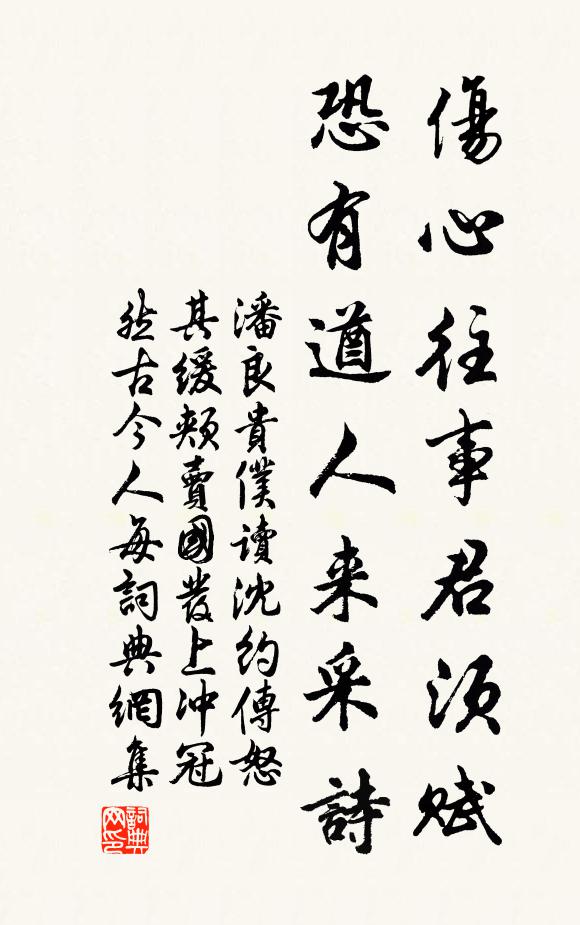 傷心往事君須賦
恐有遒人来采詩
潘良貴僕讀沈約傳怒
其緩頰賣國發上冲冠
然古今人每詞典網集
詞典网印